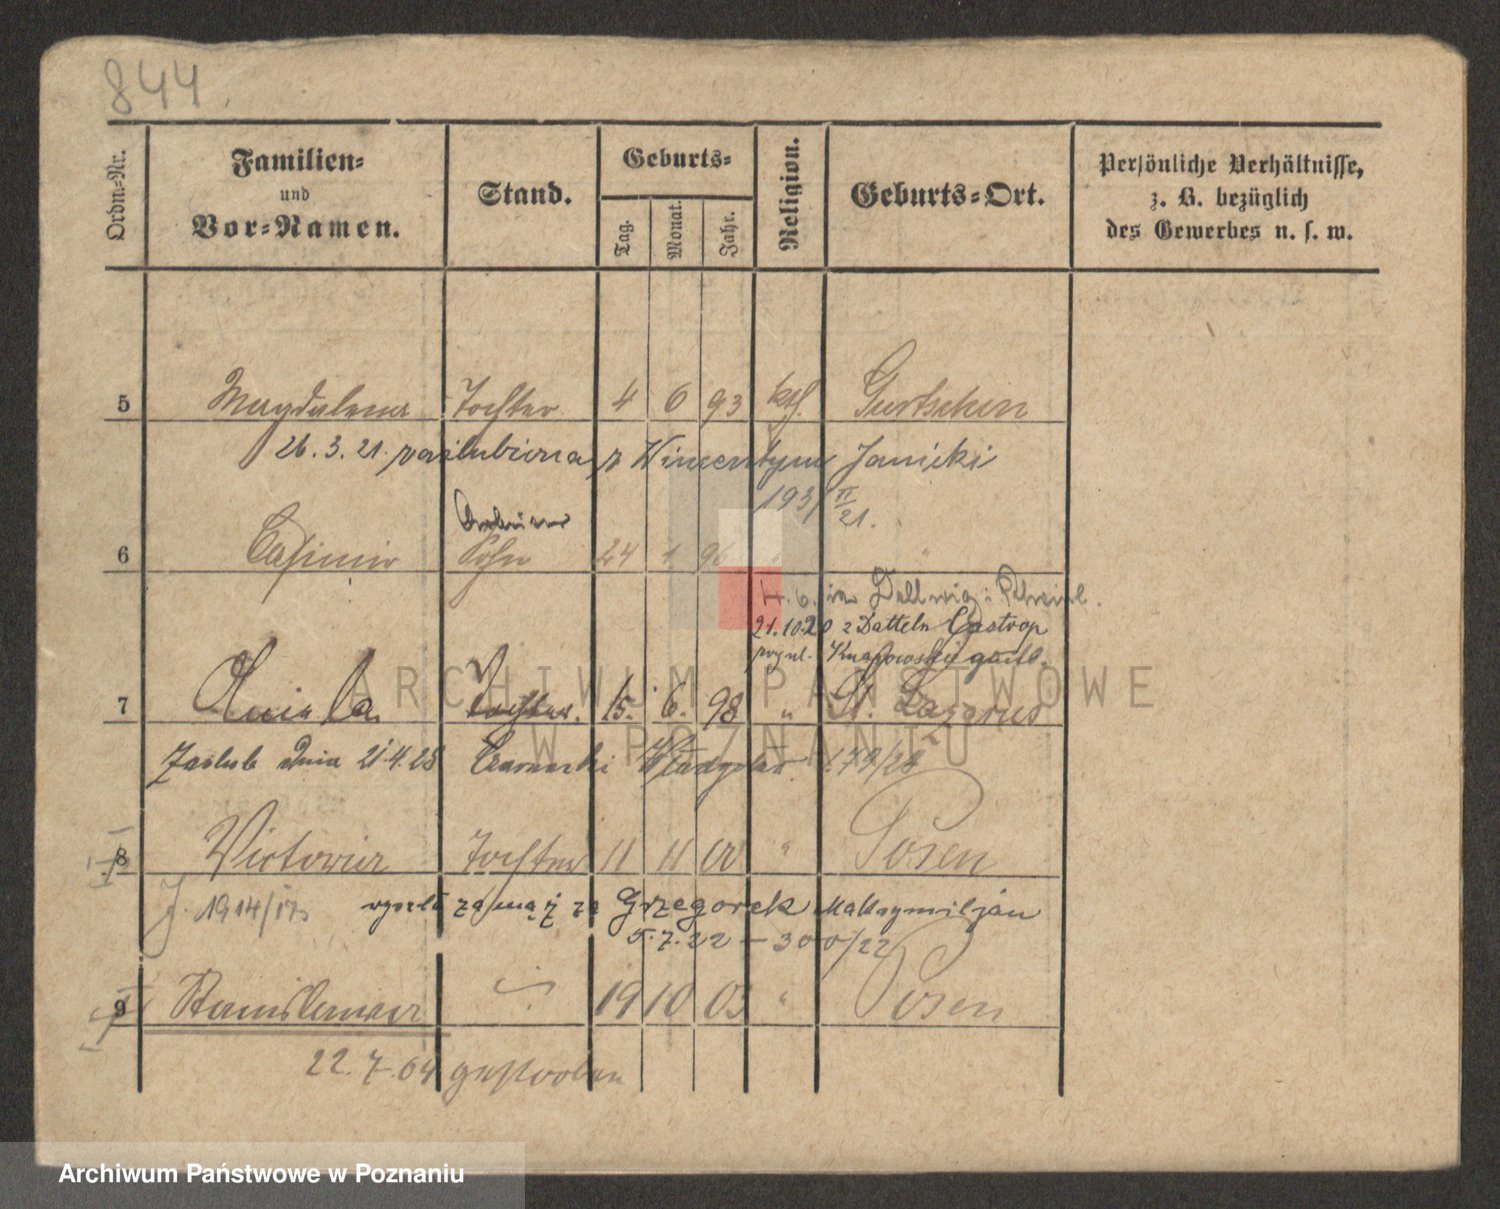 844.
Ordn.-Nr.
Familien-
und
Vor-Namen.
Stand.
Geburts-
Tag.
Monat.
Jahr.
Religion.
Geburts-Ort.
Persönliche Verhältnisse,
z. B. bezüglich
des Gewerbes u. s. w.
5 Magdalena Tochter 4 6 93 kth. Gurtschin
26.3.21. zaślubiona z Wincentym Janicki
193/ II/21.
6 Casimir Sohn 24 1 96 "
4.6. in Dellwig
21.10.20 z Datteln Castrop
7 Aniela Tochter. 15. 6. 98 " St. Lazarus
Zaślub dnia 21.4.28 Czarnecki Władysław 179/28
8 Victoria Tochter 11 11 00 " Posen
J. 1914/15 wyszła zamąż za Grzegorek Maksymiljan
5.7.22 – 300/22
9 Stanislawa 19 10 03 " Posen
22.7.04 gestorben
ARCHIWUM PAŃSTWOWE
W POZNANIU
Archiwum Państwowe w Poznaniu